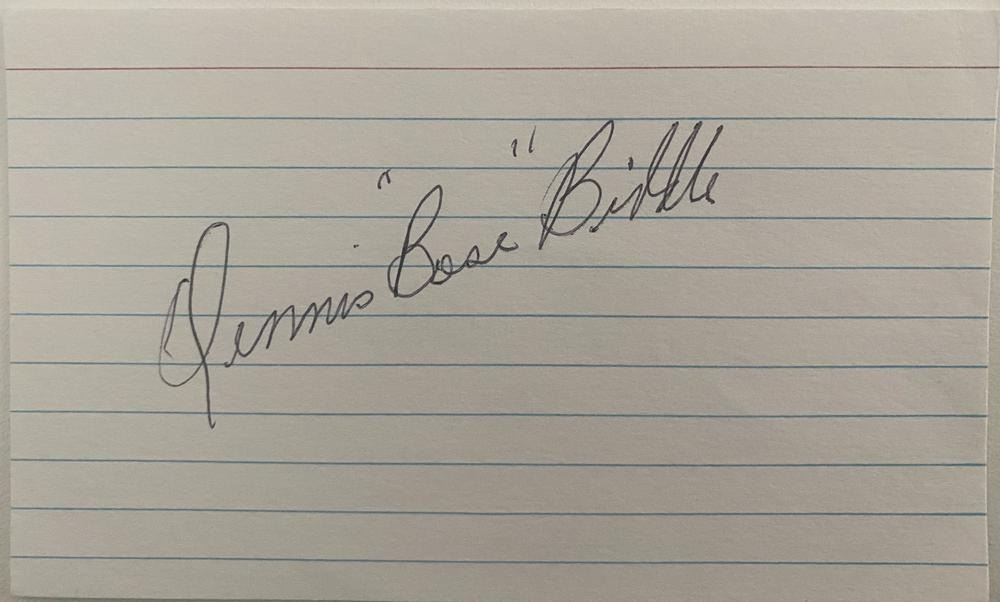 Dennis "Bose" Biddle